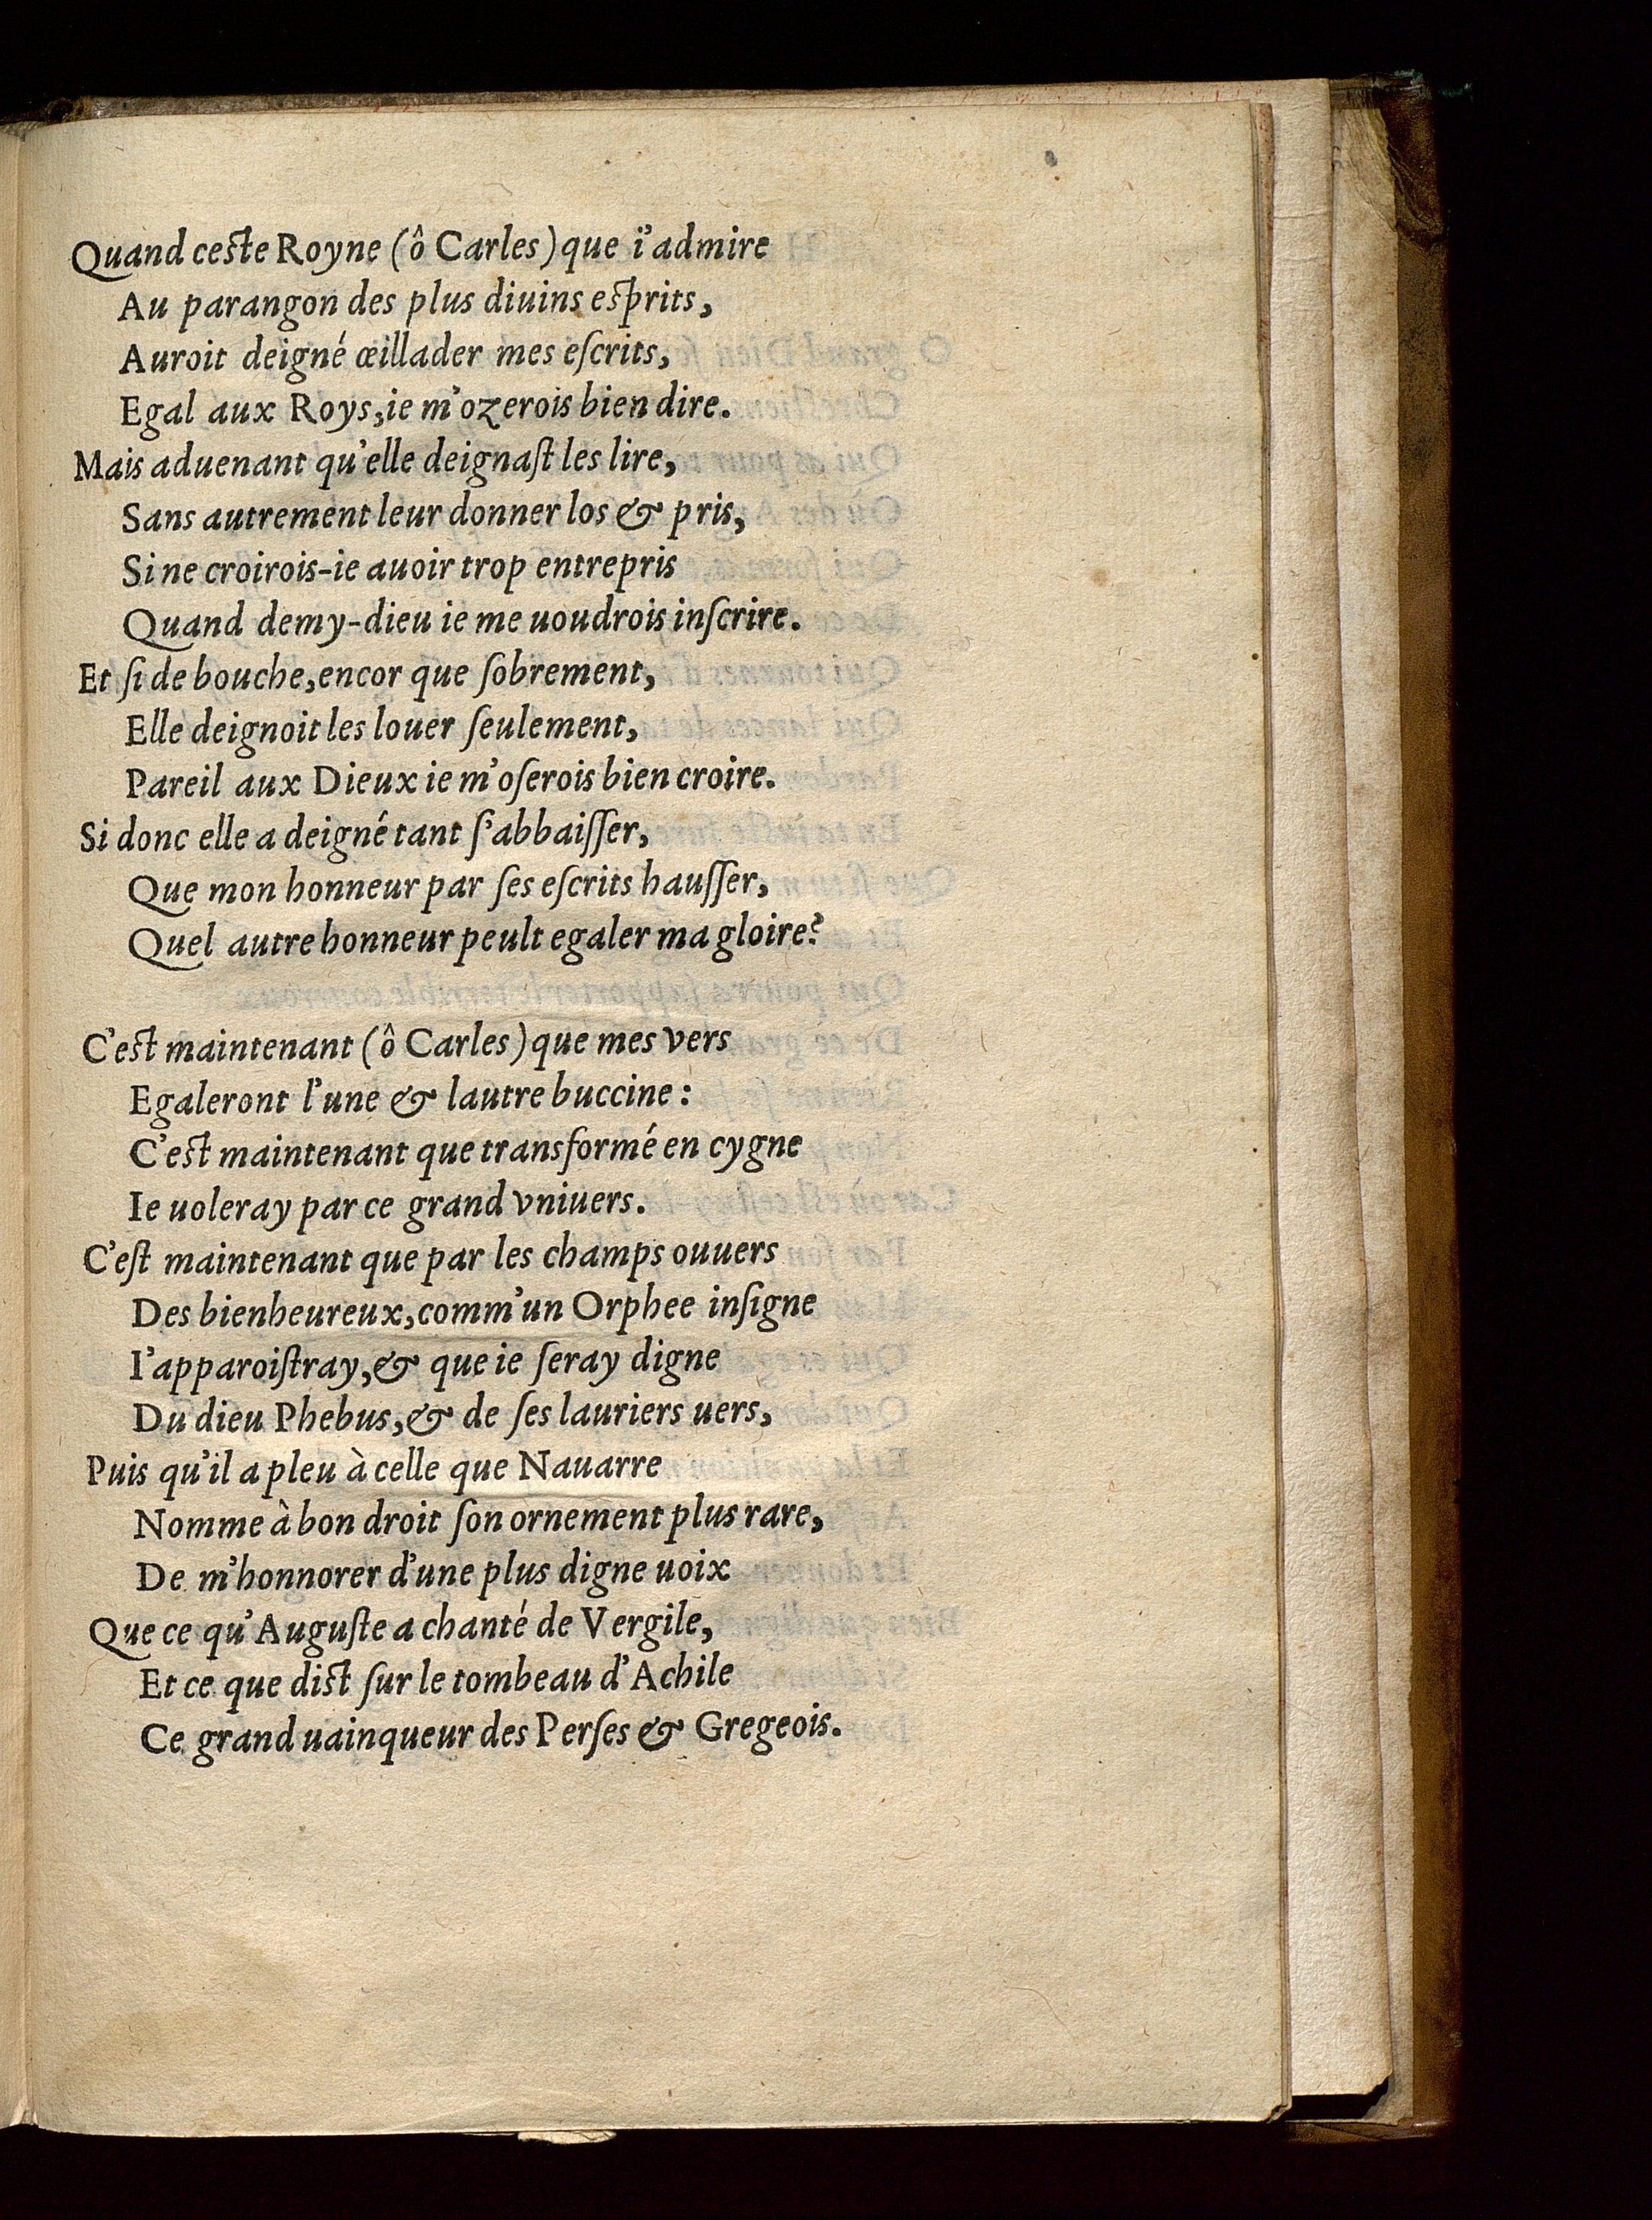 Quand ceste Royne (ô Carles) que i'admire
Au parangon des plus diuins esprits,
Auroit deigné œillader mes eſcrits,
Egal aux Roys, ie m'ozerois bien dire.
Mais aduenant qu'elle deignaſt les lire,
Sans autrement leur donner los & pris,
Si ne croirois-ie auoir trop entrepris
Quand demy-dieu ie me uoudrois inſcrire.
Et ſi de bouche, encor que ſobrement,
Elle deignoit les louer ſeulement,
Pareil aux Dieux ie m'oſerois bien croire.
Si donc elle a deigné tant ſ'abbaiſſer,
Que mon honneur par ſes eſcrits hauſſer,
Quel autre honneur peult egaler ma gloire?
C'est maintenant (ô Carles) que mes vers
Egaleront l'une & lautre buccine:
C'est maintenant que transformé en cygne
Ie uoleray par ce grand vniuers.
C'eſt maintenant que par les champs ouuers
Des bienheureux, comm'un Orphee inſigne
I'apparoiſtray, & que ie ſeray digne
Du dieu Phebus, & de ſes lauriers uers,
Puis qu'il a pleu à celle que Nauarre
Nomme à bon droit ſon ornement plus rare,
De m'honnorer d'une plus digne uoix
Que ce qu'Auguſte a chanté de Vergile,
Et ce que dist ſur le tombeau d'Achile
Ce grand uainqueur des Perſes & Gregeois.